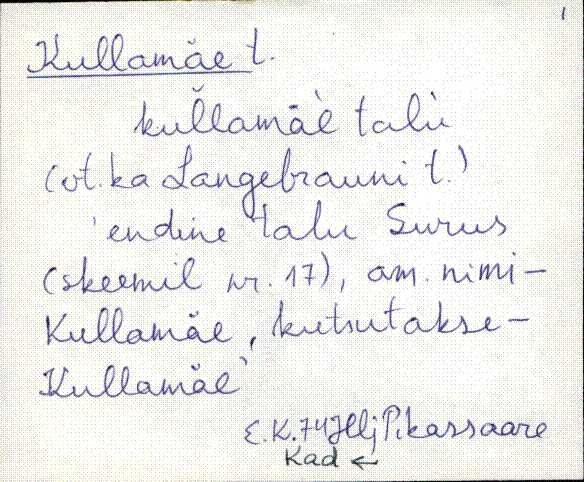 1
Kullamäe t.
kul̆lamäè talù
(vt. ka Langebrauni t.)
'endine talu Surus
(skeemil nr. 17), am. nimi-
Kullamäe, kutsutakse-
Kullamäe`
E.K. 74 Hlj Pikassaare
Kad ←